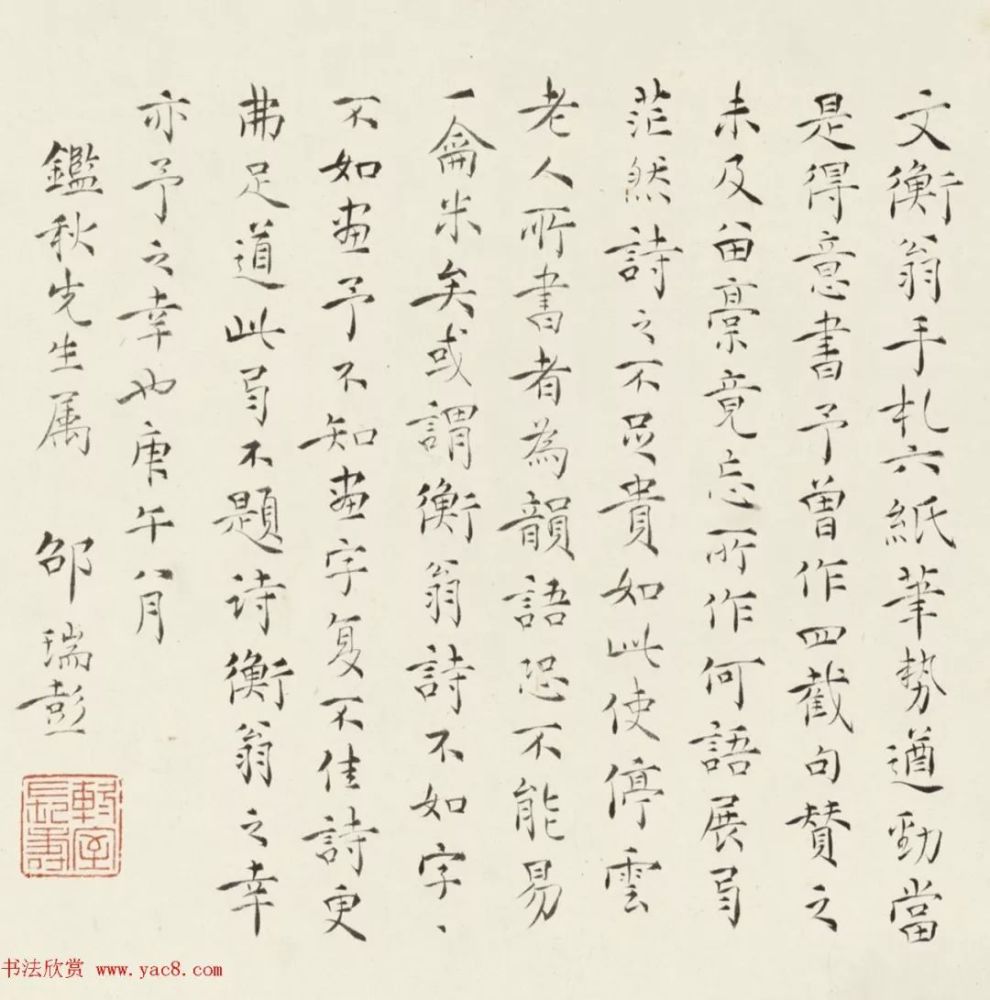 文衡翁手札六紙筆勢遒勁當
是得意書予曾作四截句贊之
未及畱稾竟忘所作何語展卷
茫然詩之不足貴如此使停雲
老人所書者為韻語恐不能易
一龠米矣或謂衡翁詩不如字、
不如畫予不知畫字复不佳詩更
弗足道此卷不題诗衡翁之幸
亦予之幸也庚午八月
鑑秋先生属 邵瑞彭
长壽
书法欣赏 www.yac8.com